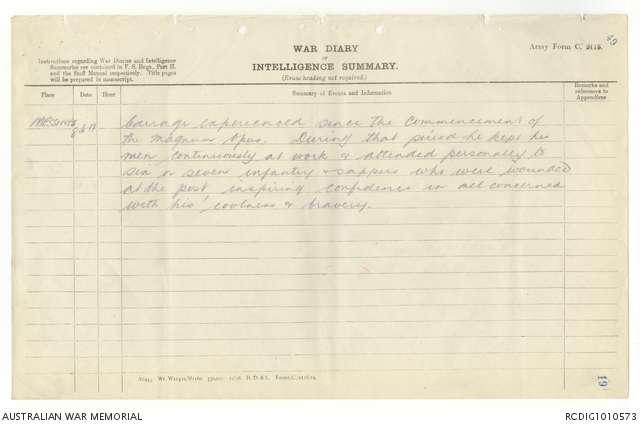 WAR DIARY
or
INTELLIGENCE SUMMARY.
(Erase heading not required.)
Army Form C. 2118.
Instructions regarding War Diaries and Intelligence
Summaries are contained in F. S. Regs., Part II.
and the Staff Manual respectively. Title pages
will be prepared in manuscript.
Place Date Hour Summary of Events and Information Remarks and
references to
Appendices
MESSINES barrage experienced since the Commencement of
the Magnum Opus. During that period he kept his
men continuously at work & attended personally to
six or seven infantry & sappers who were wounded
at the post inspiring confidence in all concerned
with his coolness & bravery.
19
AUSTRALIAN WAR MEMORIAL
RCDIG1010573